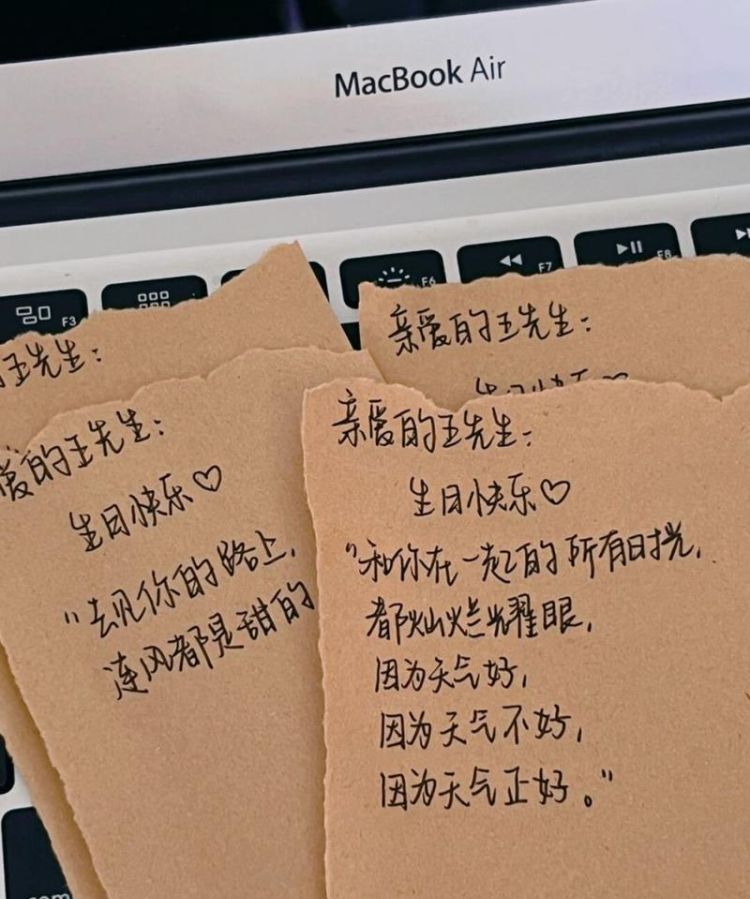 MacBook Air
F3
F6
F7
F8
王先生：
亲爱的王先生：
爱的王先生：
生日快乐♡
“去见你的路上，
连风都是甜的
亲爱的王先生：
生日快乐♡
“和你在一起的所有时光，
都灿烂耀眼，
因为天气好，
因为天气不好，
因为天气正好。”